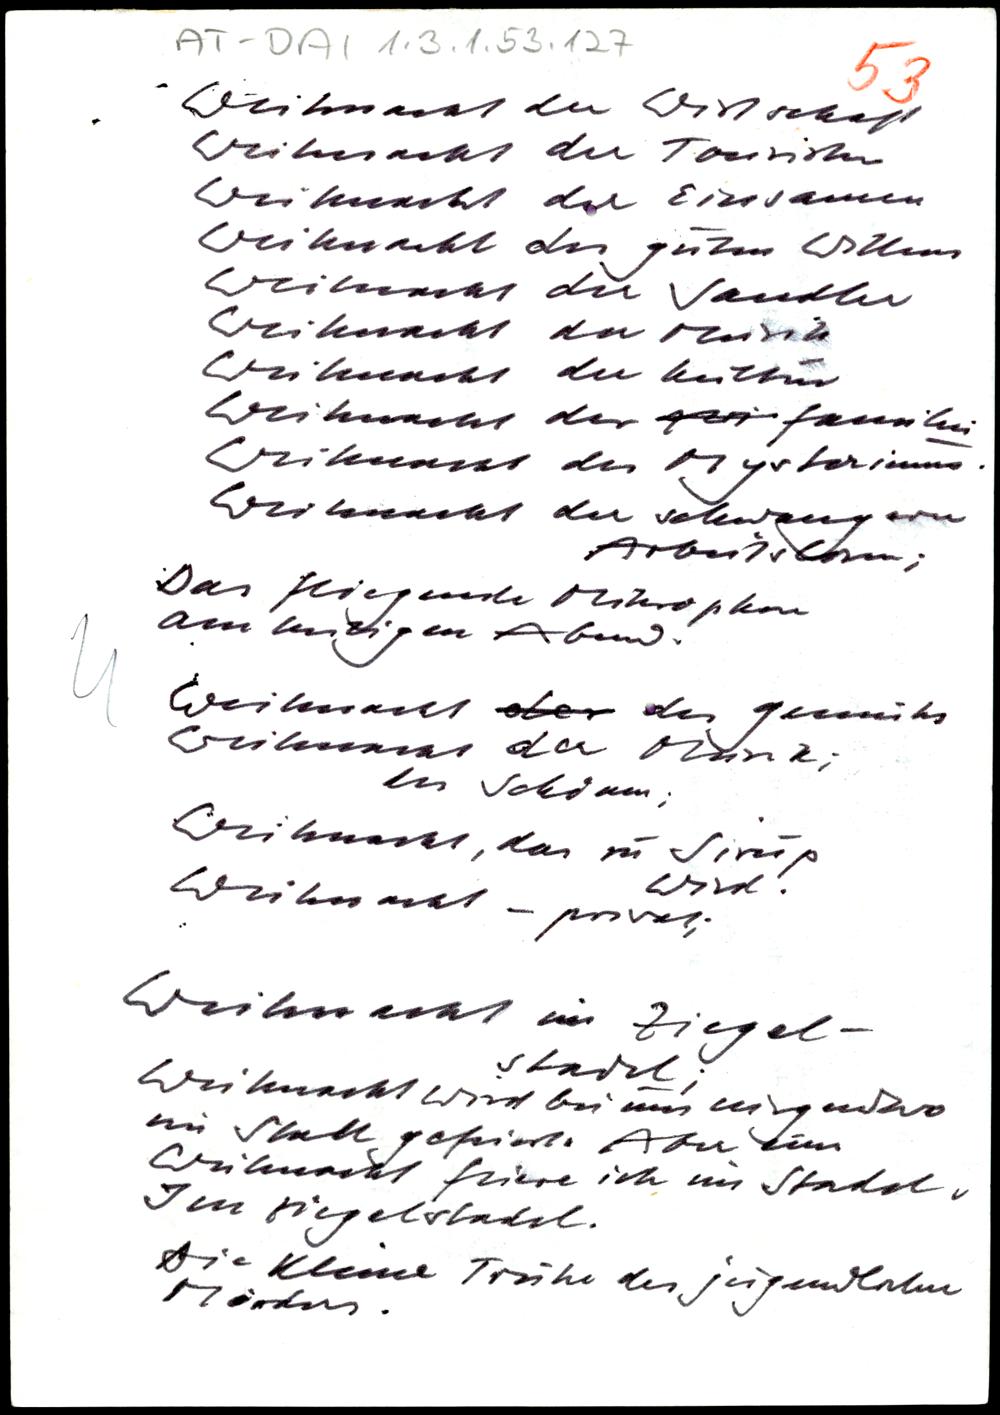 AT-DAI 1.3.1.53.127
53
Weihnacht der Wirtschaft
Weihnacht der Touristen
Weihnacht der Einsamen
Weihnacht des guten Willens
Weihnacht der Sandler
Weihnacht der Musik
Weihnacht der Kultur
Weihnacht der Familie
Weihnacht des Mysteriums.
Weihnacht der schwangeren
Arbeitslosen;
Das fliegende Mikrophon
am heiligen Abend.
Weihnacht der des Gemüts
Weihnacht der Musik;
des Schönen;
Weihnacht, das zu Sirup
wird.
Weihnacht – privat;
Weihnacht im Ziegel-
stadel;
Weihnacht wird bei uns nirgendwo
im Stall gefeiert. Aber eine
Weihnacht feiere ich im Stadel,
Im Ziegelstadel.
Die kleine Truhe des jugendlichen
Mörders.